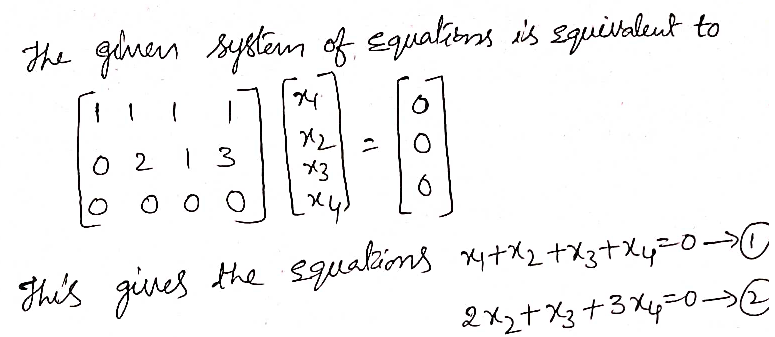 The given system of equations is equivalent to
[1 1 1 1] [x1] [0]
[0 2 1 3] [x2] = [0]
[0 0 0 0] [x3] [0]
[x4]
This gives the equations x1+x2+x3+x4=0→①
2x2+x3+3x4=0→②